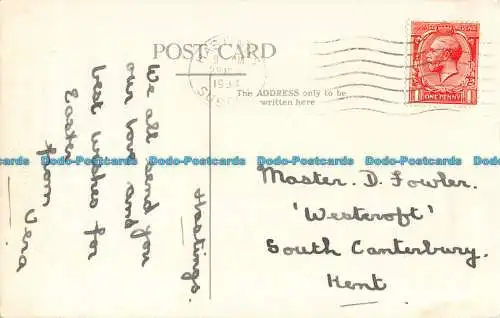 POST CARD
The ADDRESS only to be
written here
ONE PENNY
Hastings.
We all send you
our love and
best wishes for
Easter
from Vera
Master. D. Fowler.
'Westcroft'
South Canterbury.
Kent
Bado-Postcards Bado-Postcards Bado-Postcards Bado-Postcards